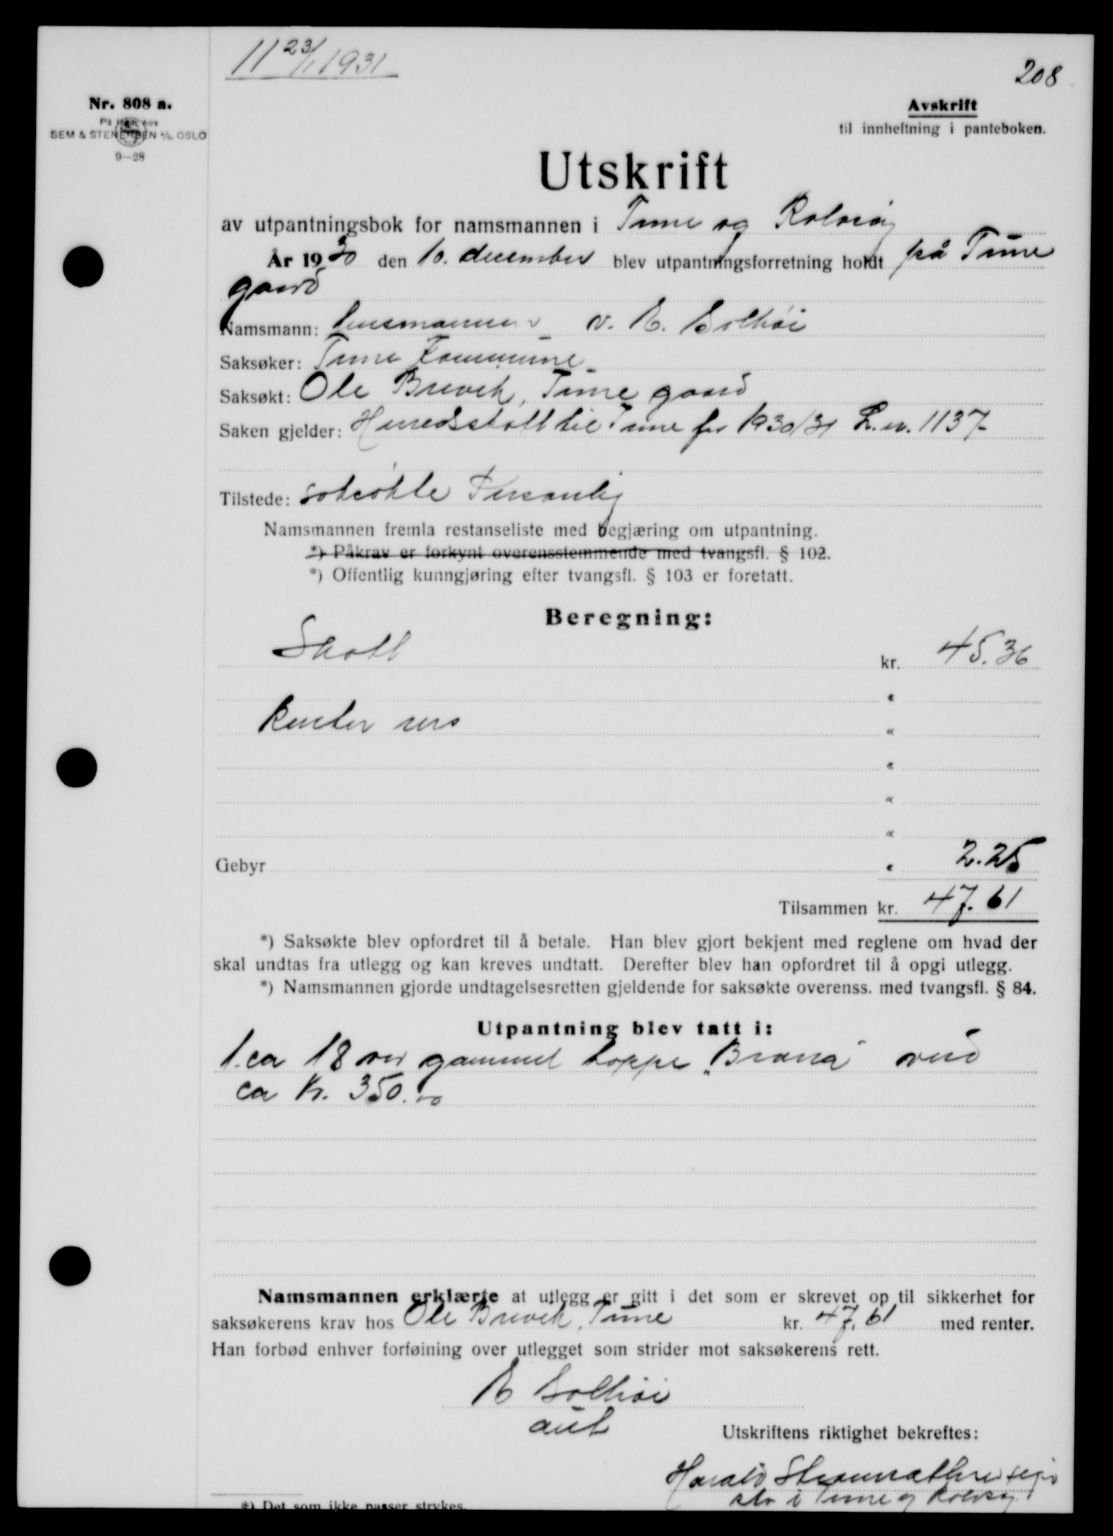 11 23/1 1931
208
Nr. 808 a.
På lager hos
SEM & STENERSEN A/S, OSLO
9—28
Avskrift
til innheftning i panteboken.
Utskrift
av utpantningsbok for namsmannen i Tune og Rolvsøy
År 1930 den 10. december blev utpantningsforretning holdt på Tune
gaard
Namsmann: Lensmannen v. E. Solhøi
Saksøker: Tune Kommune
Saksøkt: Ole Brevik, Tune gaard
Saken gjelder: Herredsskatt til Tune for 1930/31 L.nr. 1137
Tilstede: saksøkte Personlig
Namsmannen fremla restanseliste med begjæring om utpantning.
*) Påkrav er forkynt overensstemmende med tvangsfl. § 102.
*) Offentlig kunngjøring efter tvangsfl. § 103 er foretatt.
Beregning:
Skatt kr. 45.36
«
Renter «
«
«
«
Gebyr « 2.25
Tilsammen kr. 47.61
*) Saksøkte blev opfordret til å betale. Han blev gjort bekjent med reglene om hvad der
skal undtas fra utlegg og kan kreves undtatt. Derefter blev han opfordret til å opgi utlegg.
*) Namsmannen gjorde undtagelsesretten gjeldende for saksøkte overenss. med tvangsfl. § 84.
Utpantning blev tatt i:
1. ca 18 aar gammel hoppe „Brona" verd
ca Kr. 350.00
Namsmannen erklærte at utlegg er gitt i det som er skrevet op til sikkerhet for
saksøkerens krav hos Ole Brevik, Tune kr. 47,61 med renter.
Han forbød enhver forføining over utlegget som strider mot saksøkerens rett.
E Solhøi
aut
Utskriftens riktighet bekreftes:
Harald
i Tune og Rolvsøy
*) Det som ikke passer strykes.